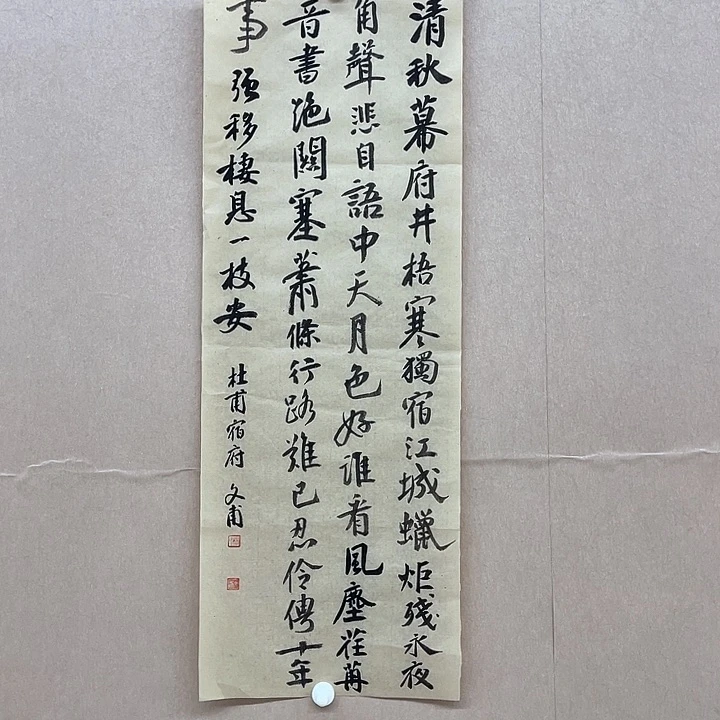 清秋幕府井梧寒獨宿江城蠟炬殘永夜
角聲悲自語中天月色好誰看風塵荏苒
音書絶關塞蕭條行路難已忍伶俜十年
事强移棲息一枝安
杜甫宿府 文甫